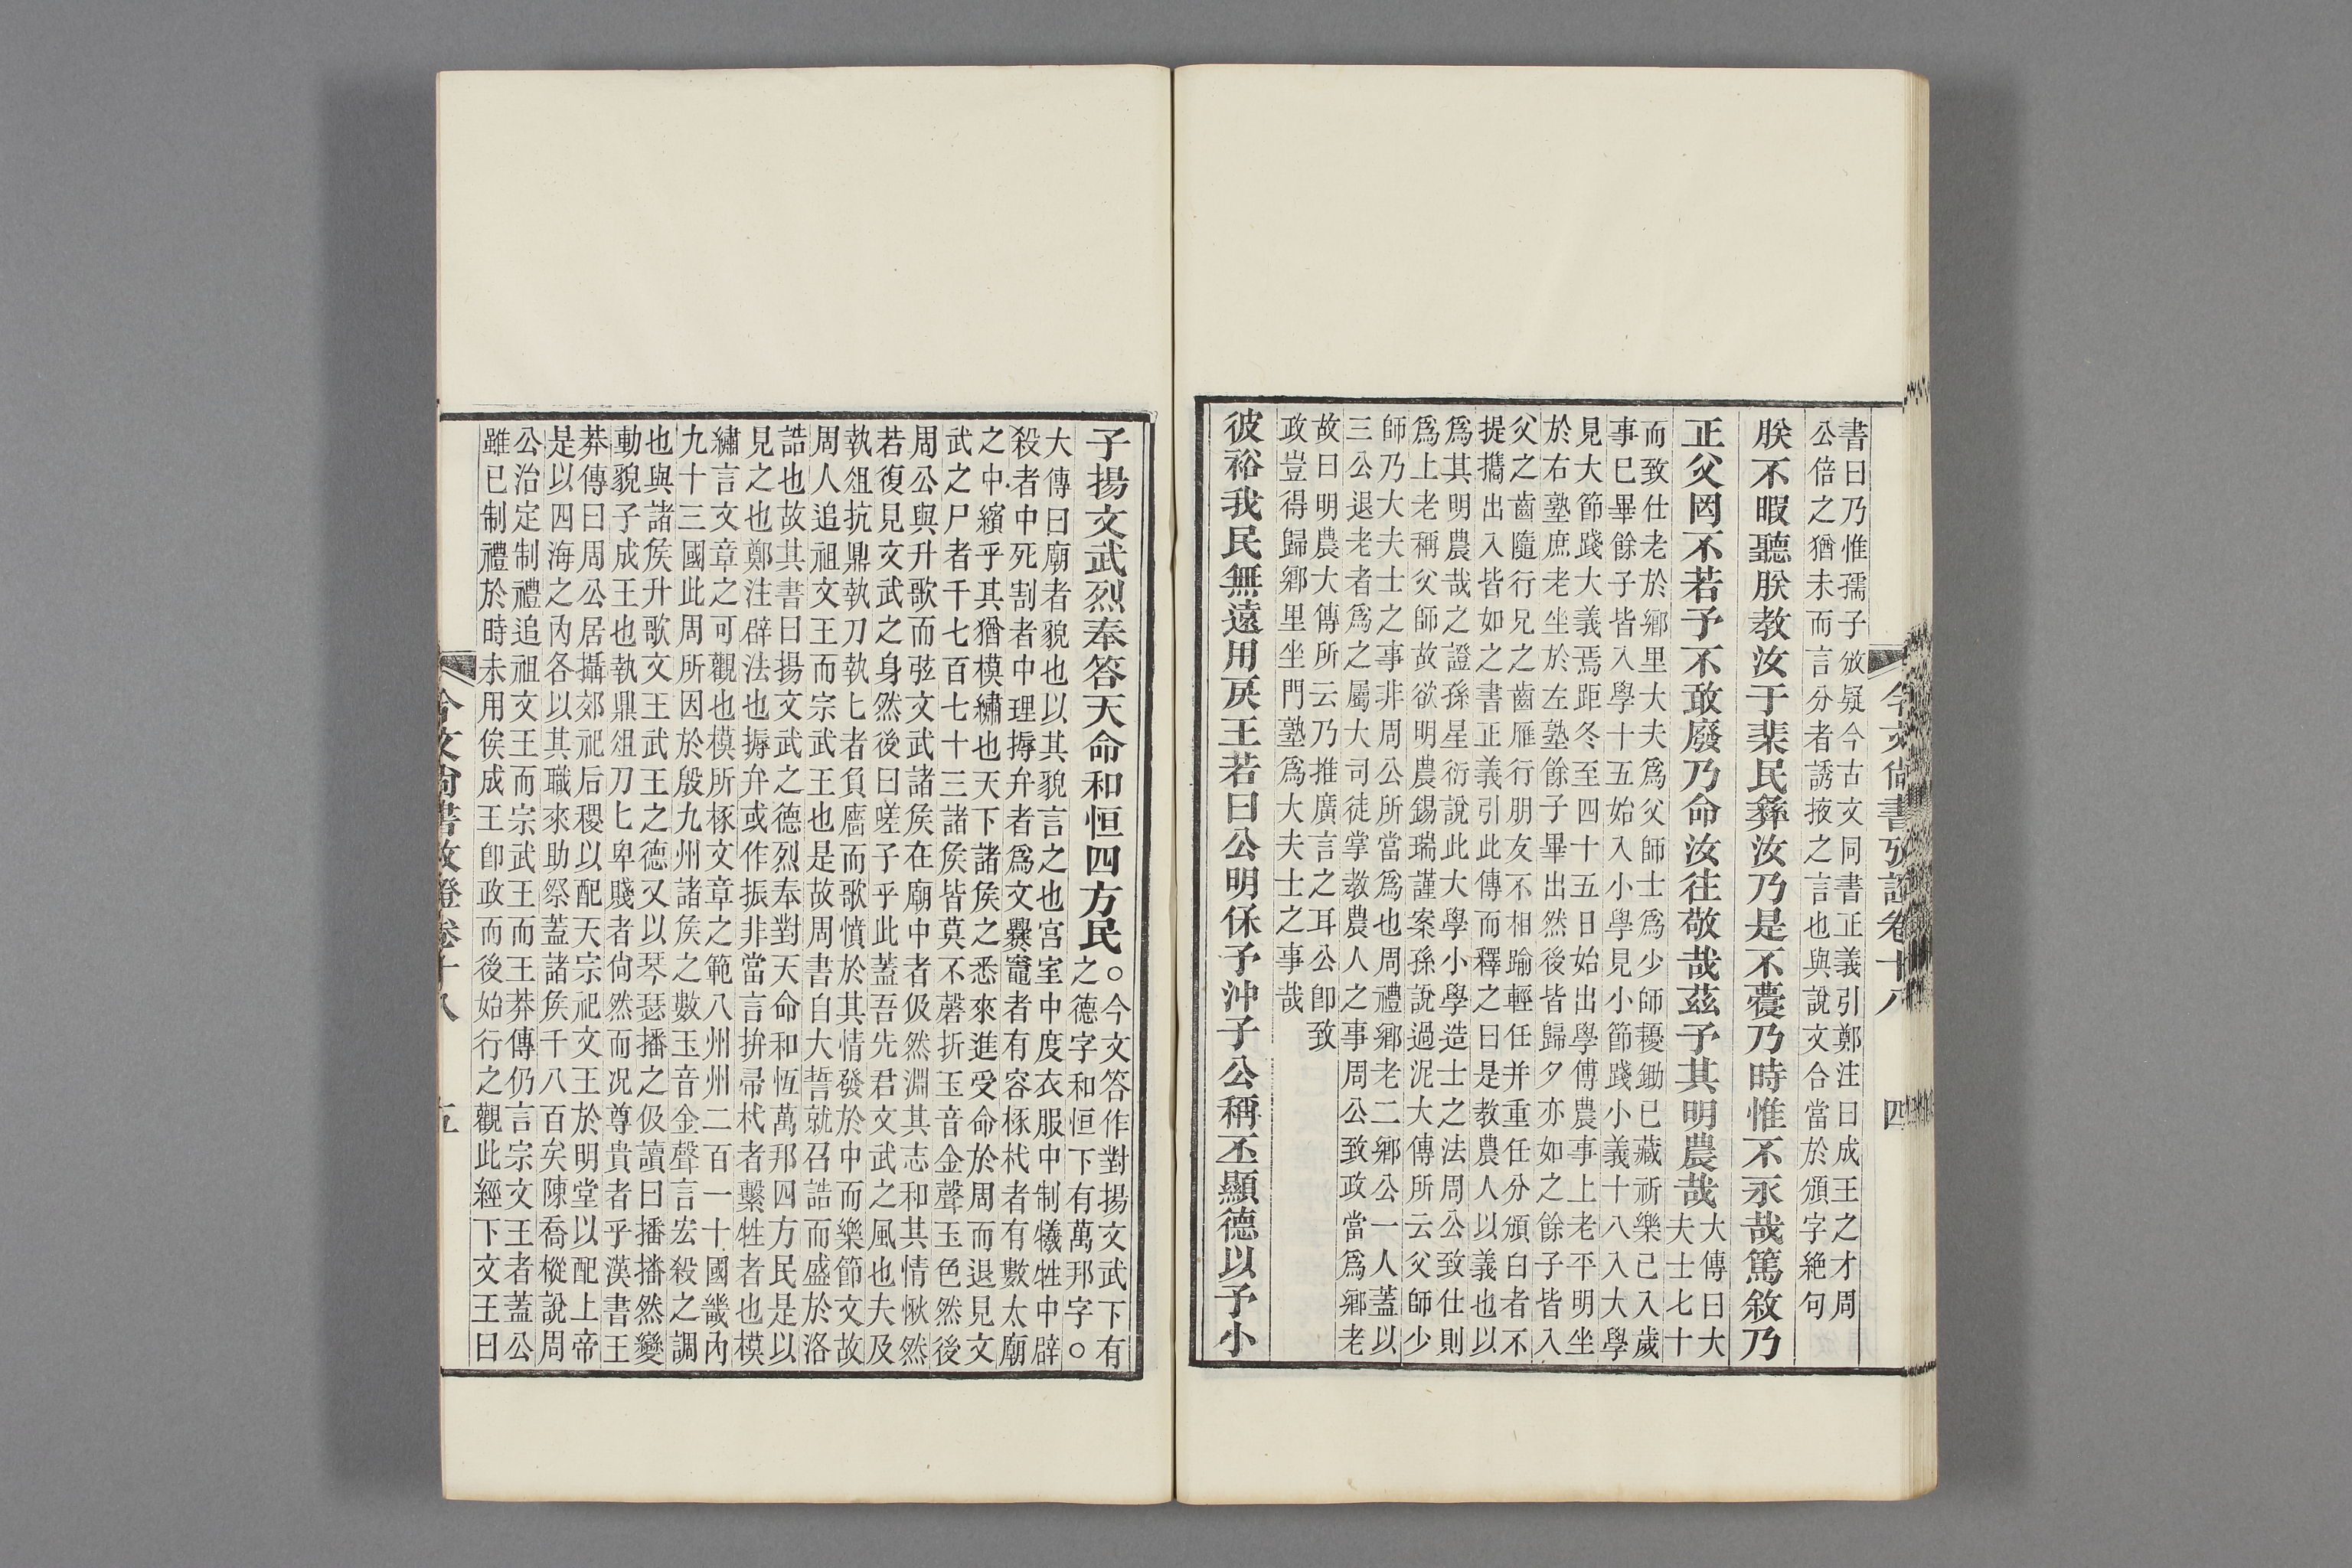 今文尚書攷證卷十八
四
書曰乃惟孺子攽疑今古文同書正義引鄭注曰成王之才周
公倍之猶未而言分者誘掖之言也與說文合當於頒字絕句
朕不暇聽朕教汝于棐民彝汝乃是不蘉乃時惟不永哉篤敘乃
正父罔不若予不敢廢乃命汝往敬哉茲予其明農哉
大傳曰大
夫士七十
而致仕老於鄉里大夫爲父師士爲少師耰鋤已藏祈樂已入歲
事巳畢餘子皆入學十五始入小學見小節踐小義十八入大學
見大節踐大義焉距冬至四十五日始出學傅農事上老平明坐
於右塾庶老坐於左塾餘子畢出然後皆歸夕亦如之餘子皆入
父之齒隨行兄之齒雁行朋友不相踰輕任并重任分頒白者不
提攜出入皆如之書正義引此傳而釋之曰是教農人以義也以
爲其明農哉之證孫星衍說此大學小學造士之法周公致仕則
爲上老稱父師故欲明農錫瑞謹案孫說過泥大傳所云父師少
師乃大夫士之事非周公所當爲也周禮鄉老二鄉公一人蓋以
三公退老者爲之屬大司徒掌教農人之事周公致政當爲鄉老
故曰明農大傳所云乃推廣言之耳公卽致
政豈得歸鄉里坐門塾爲大夫士之事哉
彼裕我民無遠用戾王若曰公明保予沖子公稱丕顯德以予小
子揚文武烈奉答天命和恒四方民。
今文答作對揚文武下有
之德字和恒下有萬邦字。
大傳曰廟者貌也以其貌言之也宮室中度衣服中制犧牲中辟
殺者中死割者中理搙弁者爲文爨竈者有容椓杙者有數太廟
之中繽乎其猶模繡也天下諸侯之悉來進受命於周而退見文
武之尸者千七百七十三諸侯皆莫不磬折玉音金聲玉色然後
周公與升歌而弦文武諸侯在廟中者伋然淵其志和其情愀然
若復見文武之身然後曰嗟子乎此蓋吾先君文武之風也夫及
執俎抗鼎執刀執匕者負廧而歌憤於其情發於中而樂節文故
周人追祖文王而宗武王也是故周書自大誓就召誥而盛於洛
誥也故其書曰揚文武之德烈奉對天命和恆萬邦四方民是以
見之也鄭注辟法也搙弁或作振非當言拚帚杙者繫牲者也模
繡言文章之可觀也模所椓文章之範八州州二百一十國畿內
九十三國此周所因於殷九州諸侯之數玉音金聲言宏殺之調
也與諸侯升歌文王武王之德又以琴瑟播之伋讀曰播播然變
動貌子成王也執鼎俎刀匕卑賤者尙然而況尊貴者乎漢書王
莽傳曰周公居攝郊祀后稷以配天宗祀文王於明堂以配上帝
是以四海之內各以其職來助祭蓋諸侯千八百矣陳喬樅說周
公治定制禮追祖文王而宗武王而王莽傳仍言宗文王者蓋公
雖已制禮於時未用俟成王卽政而後始行之觀此經下文王曰
今文尚書攷證卷十八
五